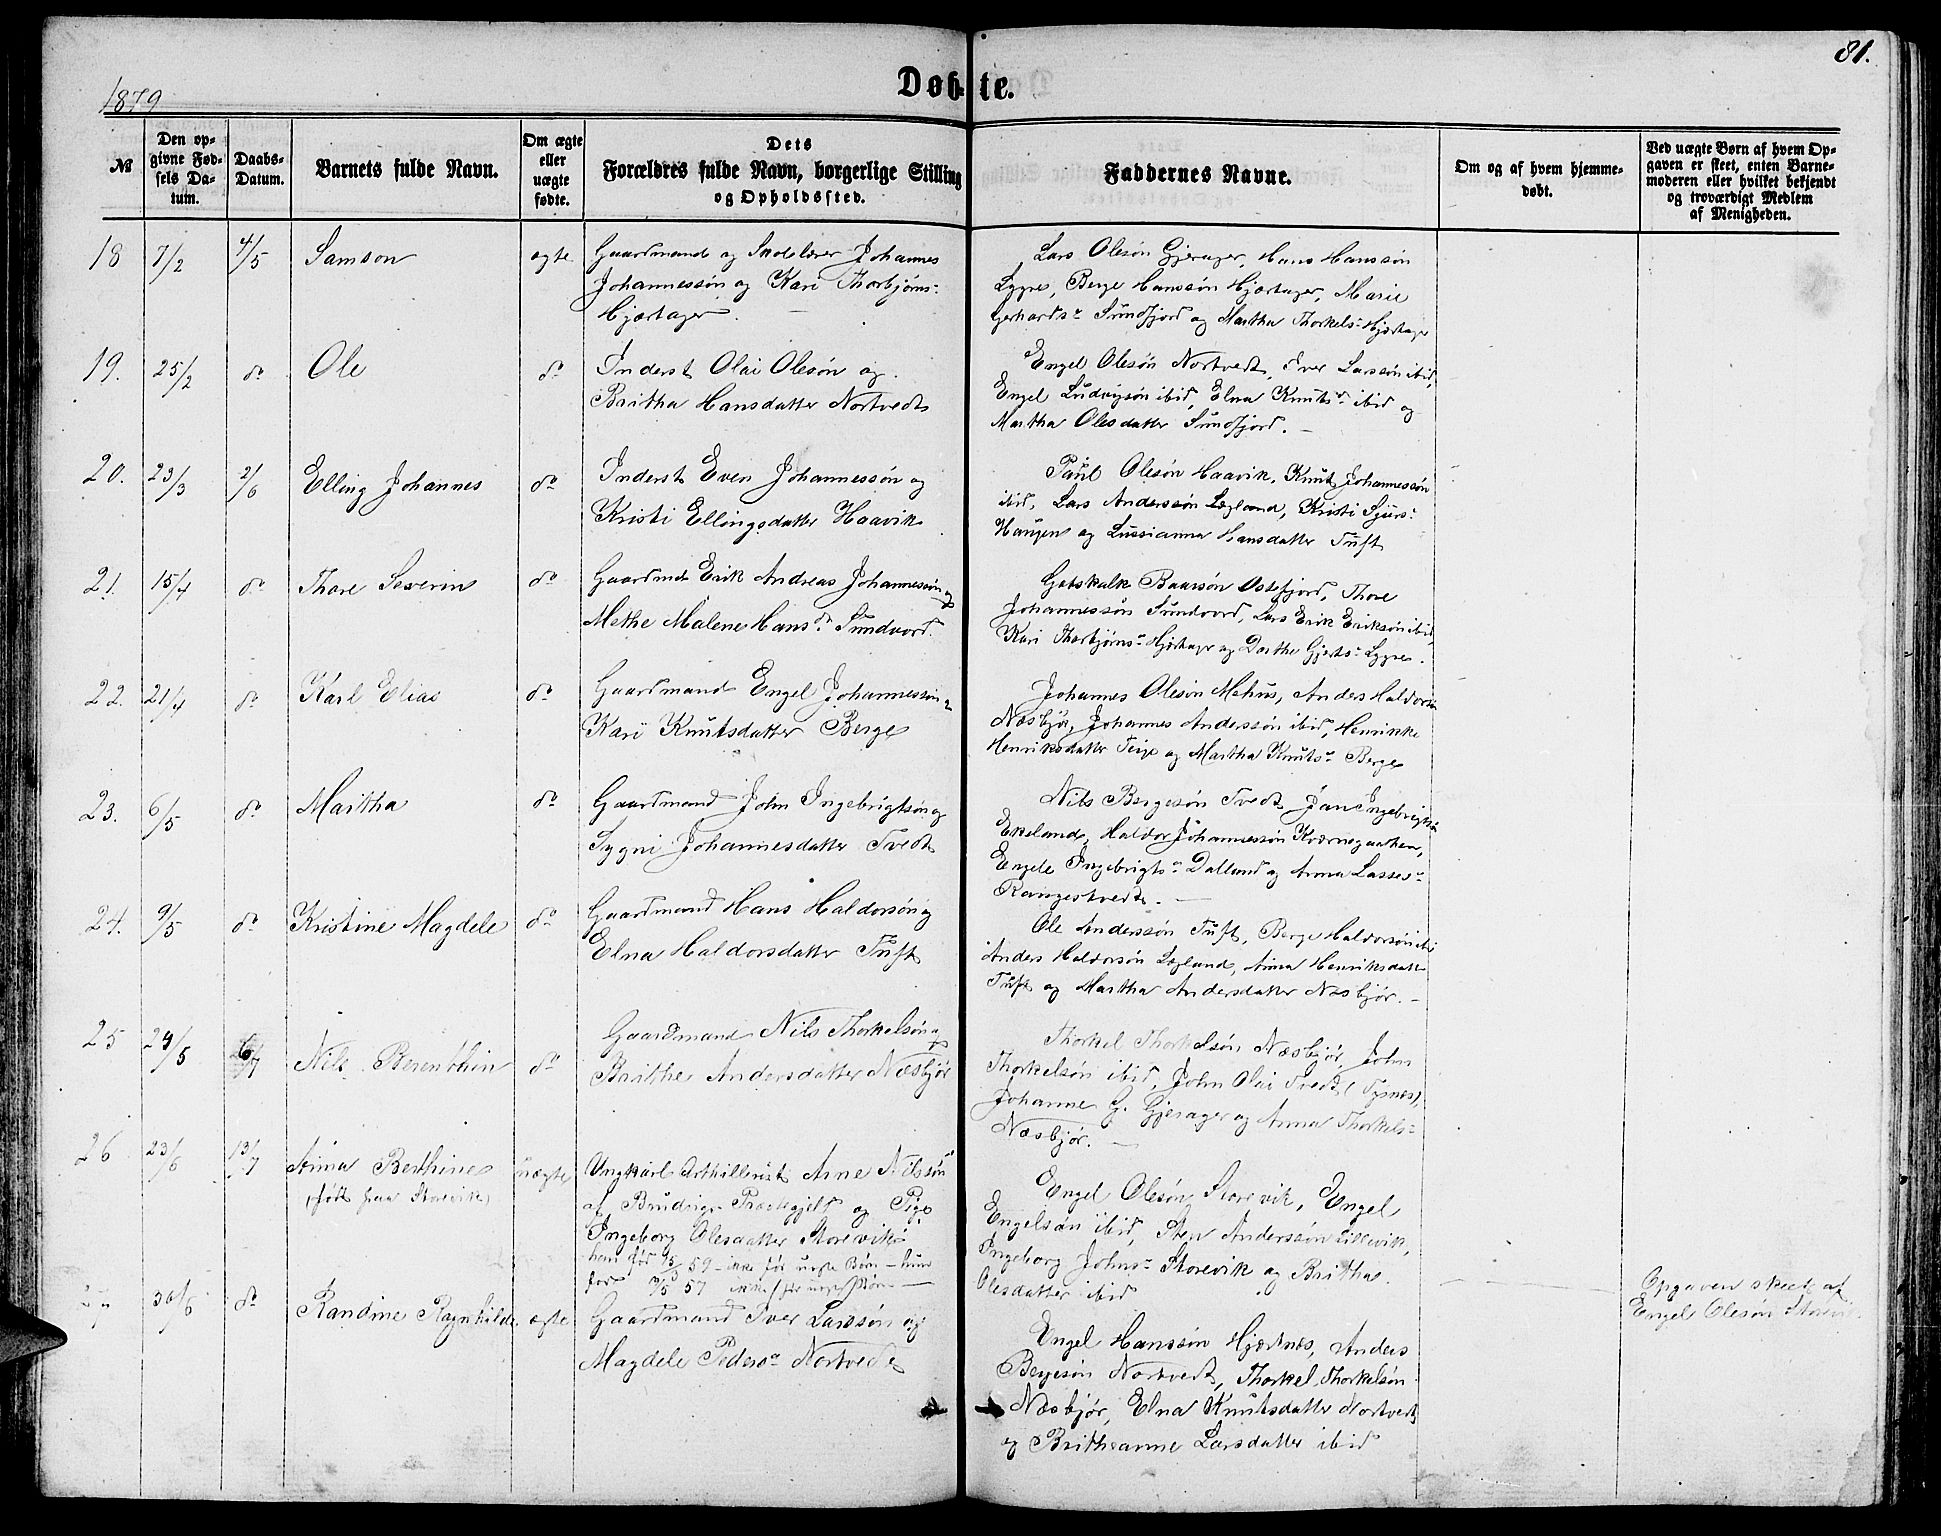 1879
Døbte.
81.
№
Den op-
givne Fød-
sels Da-
tum.
Daabs-
Datum.
Barnets fulde Navn.
Om ægte
eller
uægte
fødte.
Dets
Forældres fulde Navn, borgerlige Stilling
og Opholdssted.
Faddernes Navne.
Om og af hvem hjemme-
døbt.
Ved uægte Børn af hvem Op-
gaven er skeet, enten Barne-
moderen eller hvilket bekjendt
og troværdigt Medlem
af Menigheden.
18 7/2 4/5 Samson ægte
Gaardmand og Skolelærer Johannes
Johannessøn og Kari Thorbjørns-
Hjartager.
Lars Olesøn Gjerager, Hans Hanssøn
Lygre, Berge Hanssøn Hjartager, Marie
Gerhards- Sundfjord og Martha Thorkels- Hjartager
19. 25/2 do Ole do
Inderst Olai Olesøn og
Britha Hansdatter Nortvedt
Engel Olesøn Nortvedt, Iver Larssøn ibid,
Engel Ludvigsøn ibid, Elna Knuts- ibid og
Martha Olesdatter Sundfjord. -
20. 23/3 2/6 Elling Johannes do
Inderst Even Johannessøn og
Kristi Ellingsdatter Haavik
Paul Olesøn Haavik, Knut Johannessøn
ibid, Lars Anderssøn Lægland, Kristi Sjurs-
Haugen og Lussianna Hansdatter Tuft
21. 15/4 do Thore Severin do
Gaardmd Erik Andreas Johannessøn og
Methe Malene Hansdr. Sundvord.
Gotskalk Baarsøn Ostefjord, Thore
Johannessøn Sundvord, Lars Erik Eriksøn ibid,
Kari Thorbjørns- Hjartager og Dorthe Gjerts- Lygre.
22. 21/4 do Karl Elias do
Gaardmand Engel Johannessøn &
Kari Knutsdatter Berge
Johannes Olesøn Mehus, Anders Haldorsøn
Næsbjør, Johannes Anderssøn ibid, Henrikke
Henriksdatter Teige og Martha Knuts- Berge
23. 6/5 do Martha do
Gaardmand John Ingebrigtsøn og
Sygni Johannesdatter Tvedt
Nils Bergesøn Tvedt, Jan Ingebrigtsøn
Ekeland, Haldor Johannessøn Kværnegaarden,
Engele Ingebrigts- Dalland og Anna Lasses-
Rangestvedt. -
24. 9/5 do Kristine Magdele do
Gaardmand Hans Haldorsøn og
Elna Haldorsdatter Tuft
Ole Anderssøn Tuft, Berge Haldorsøn ibi
Anders Haldorsøn Lægland, Anna Henriksdatt
Tuft og Martha Andersdatter Næsbjør. -
25 24/5 6/7 Nils Berenthin do
Gaardmand Nils Thorkelsøn og
Brithe Andersdatter Næsbjør
Thorkel Thorkelsøn Næsbjør, John
Thorkelsøn ibid, John Olai Tvedt (Tysnæs),
Johanne G. Gjerager og Anna Thorkels-
Næsbjør. -
26 23/6 13/7 Anna Berthine uægte
(født paa Storevik)
Ungkarl Arthillerist Arne Nilssøn
af Bruvigs Præstegjeld og Pige
Ingeborg Olesdatter Storevik.
han før 15/3 59 - ikke før uægte Børn - hun
født 9/5 57 ikke før uægte Børn -
Engel Olesøn Storevik, Engel
Engelsøn ibid, Sten Anderssøn Lillevik,
Ingeborg Johns- Storevik og Britha
Olesdatter ibid
Opgaven skeet af
Engel Olesøn Storevik.
27 30/6 do Randine Ragnhilde ægte
Gaardmand Iver Larssøn og
Magdele Peders- Nortvedt
Engel Hanssøn Hjartnæs, Anders
Bergesøn Nortvedt, Thorkel Thorkelsøn
Næsbjør, Elna Knutsdatter Nortvedt
og Britheanne Larsdatter ibid